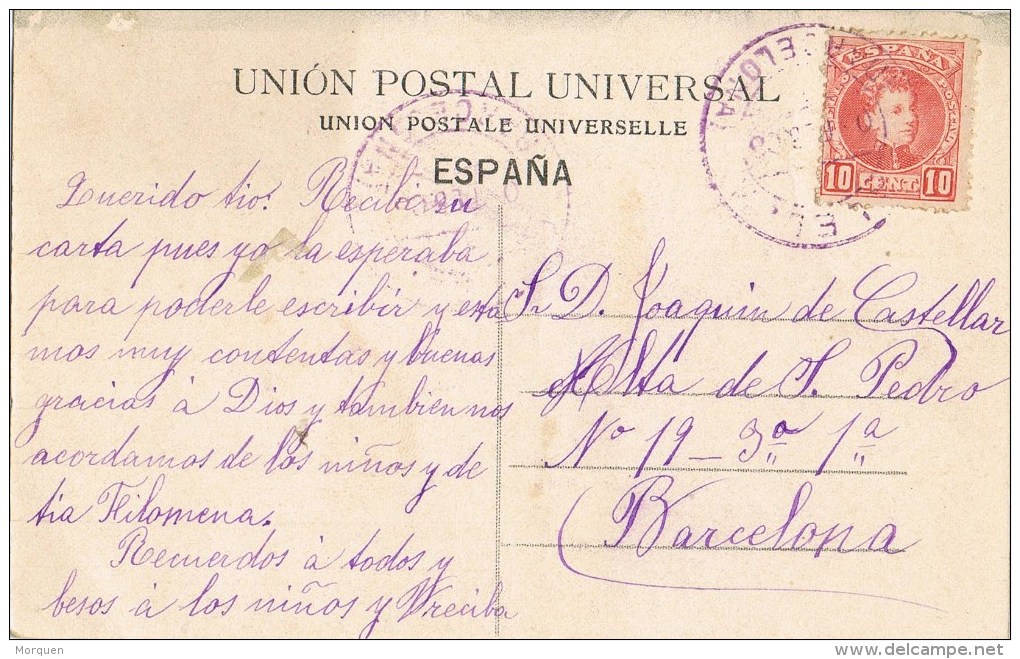 UNIÓN POSTAL UNIVERSAL
UNION POSTALE UNIVERSELLE
ESPAÑA
ESPAÑA
10 CENT 10
Querido tio: Recibi su
carta pues ya la esperaba
para poderle escribir y esta
mos muy contentas y buenas
gracias á Dios y tambien nos
acordamos de los niños y de
tia Filomena.
Recuerdos á todos y
besos á los niños y V reciba
Sr D. Joaquin de Castellar
Alta de S. Pedro
Nº 19 - 3º 1ª
Barcelona
Morquen
delcampe.net